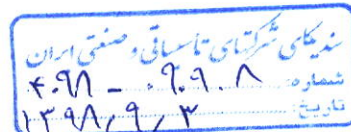 سندیکای شرکتهای تاسیساتی و صنعتی ایران
شماره: ۴۰۹۸ - ۰۹۰۸
تاریخ: ۱۳۹۸/۹/۳